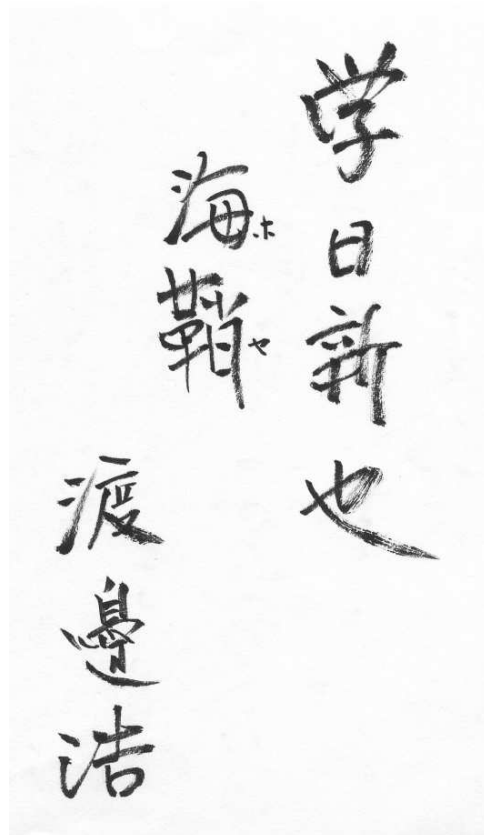 学日新也
海鞘
ホや
渡邉浩